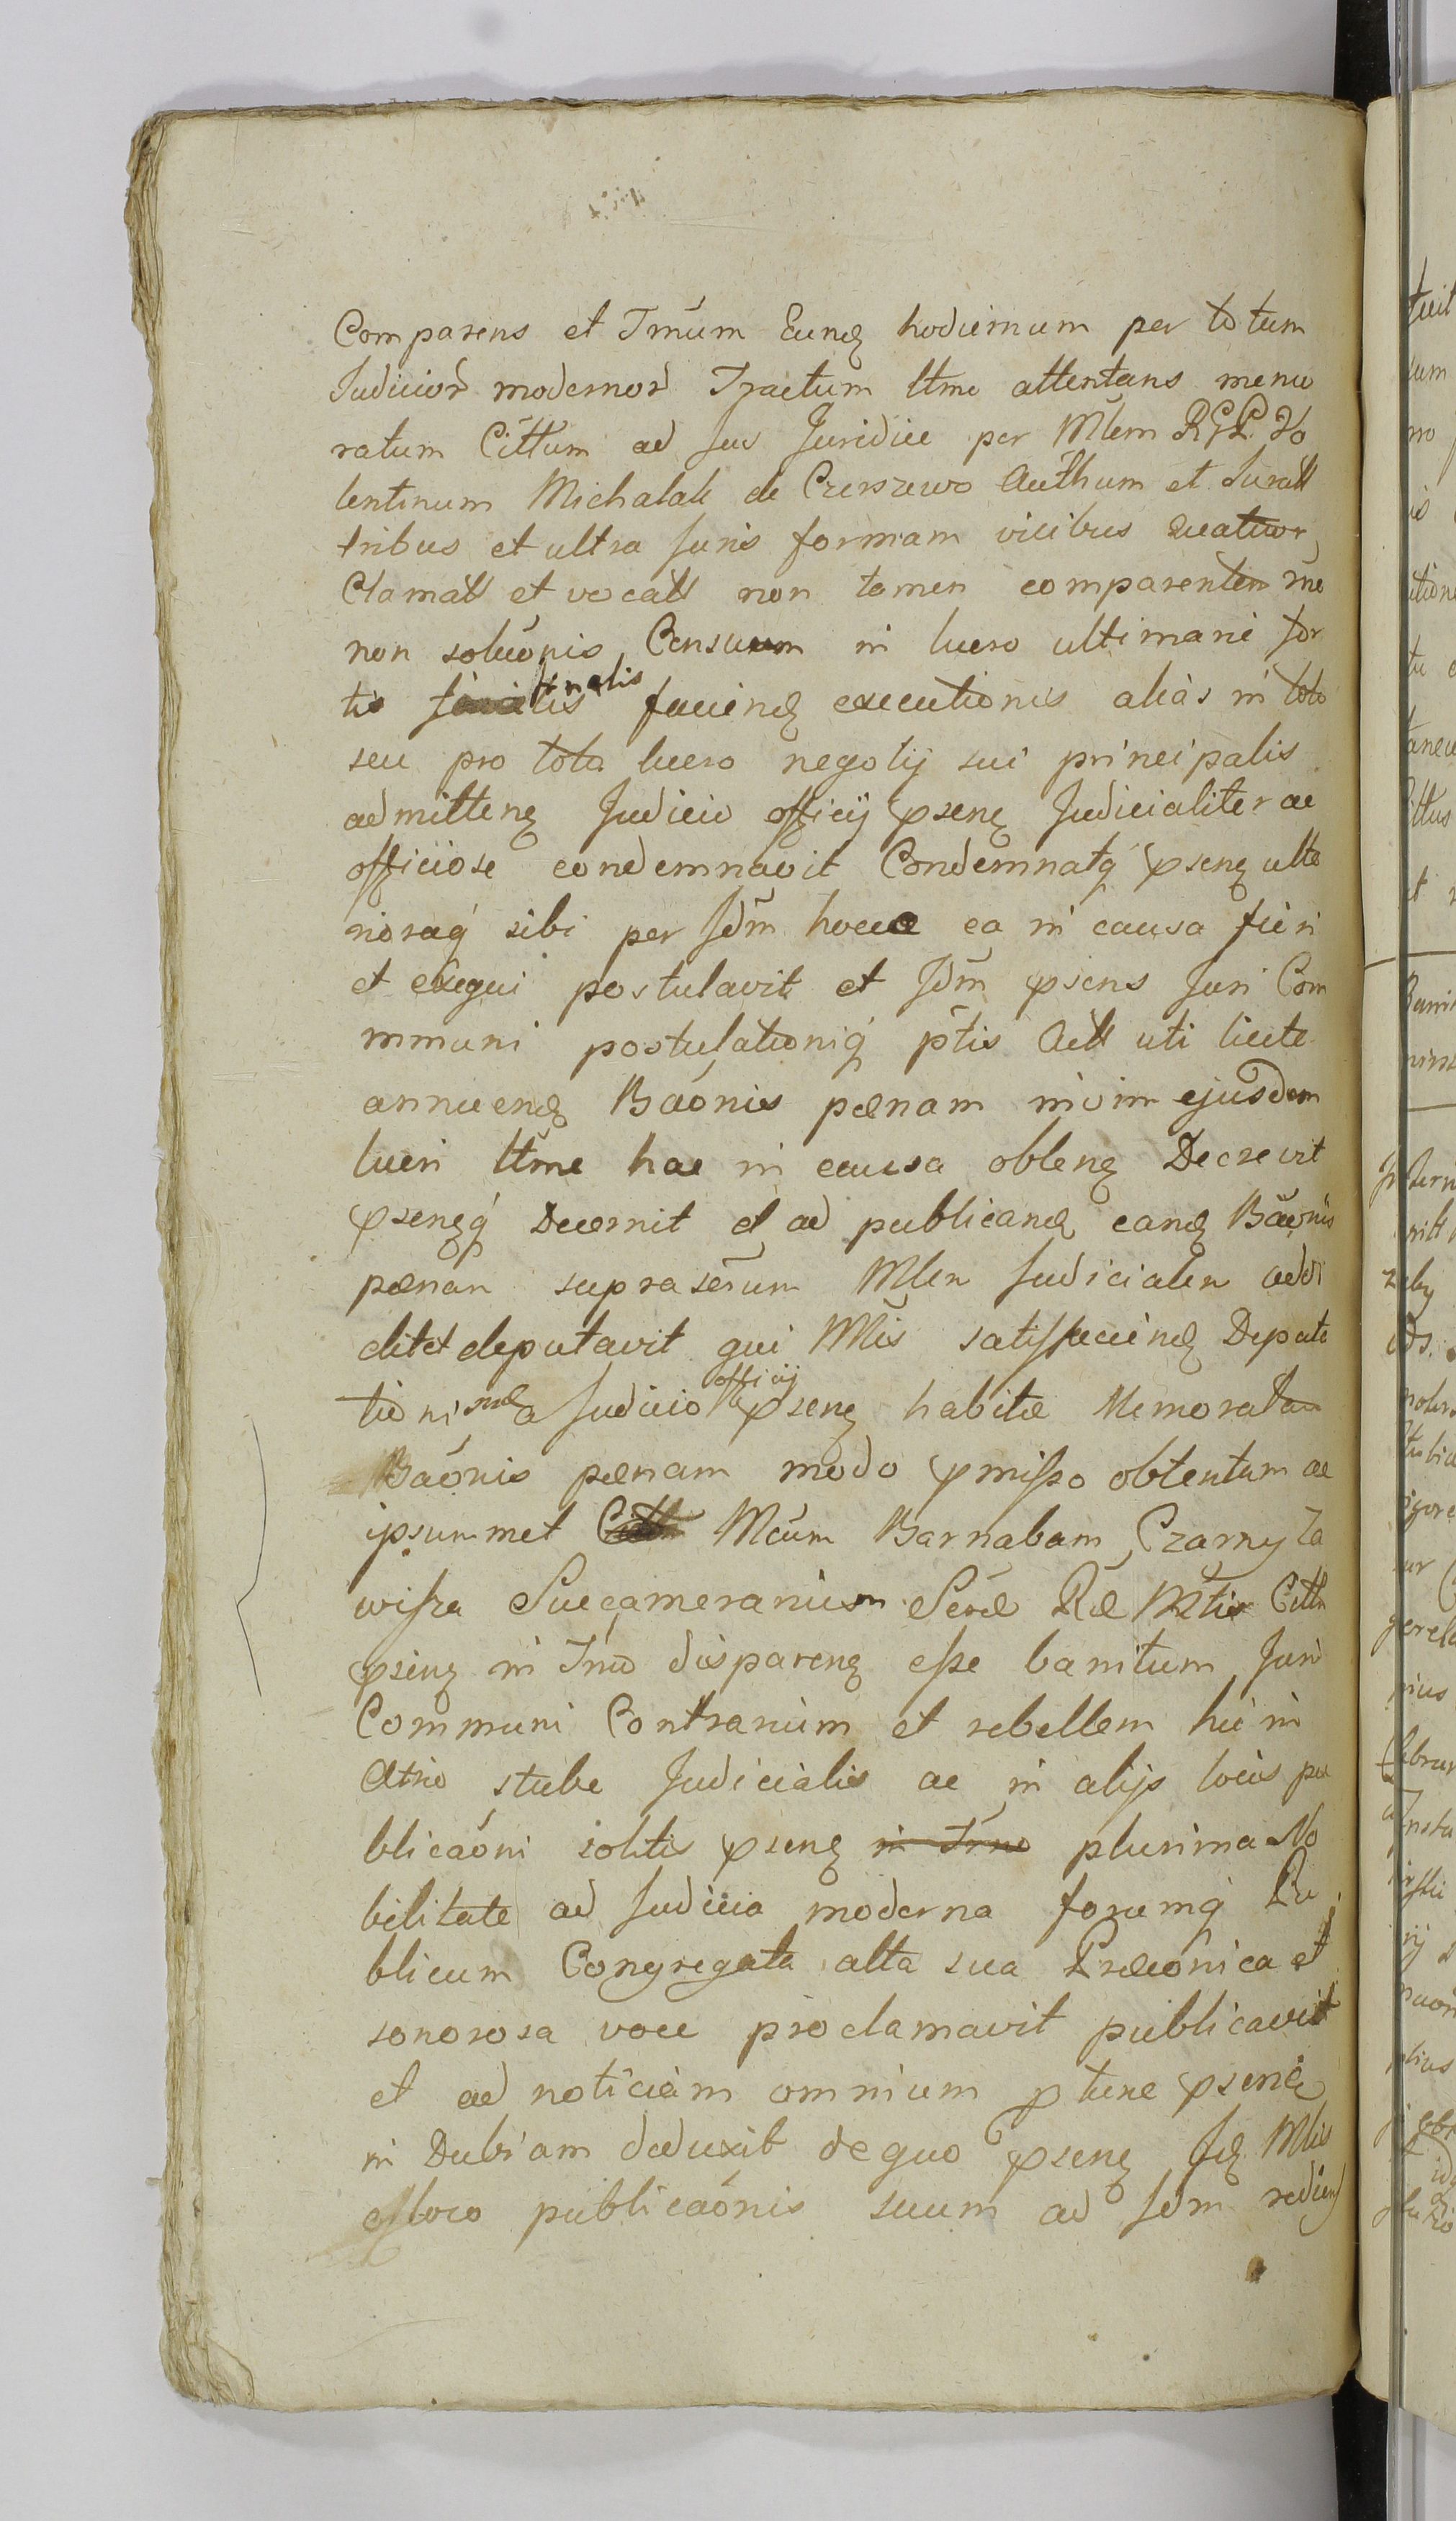 Comparens et Tmum Eundę hodiernum per totum
Judicior modernor Tractum ltme attentans memo
ratum Cittum ad se Juridice per Mlem RGL Vo
lentinum Michalak de Czerszewo Autthum et Juratt
tribus et ultra Juris formam vicibus Quatuor
Clamatt et vocatt non tamen comparentem rne
non soluonis Censuum in lucro ultimarie for
tis finalis faciendę executionis alias in toto
seu pro toto lucro negotij sui principalis
admittenę Judicio officij psenę Judicialiter ac
officiose condemnavit Condemnatq psenę ulte
rioraq sibi per Jdm hocce ea in causa fieri
et exequi postulavit et Jdm psens Juri Com
mmuni postulationiq ptis Actt uti licite
annuendę Baonis pænam in vim ejusdem
lucri ltme hac in causa obtenę Decrevit
psenęq Decernit et ad publicandę eandę Baonis
pænam suprascrum Mlem Judicialem addi
dit et deputavit qui Mlis satisfaciendę Deputa
tioni suæ a Judicio officij psenę habitæ Memoratam
Baonis pænam modo pmisso obtentam ac
ipsummet Mcum Barnabam Czarny Za
wisza Succamerarium Seræ Ræ Mtis Cittm
psenę in Tmo disparenę esse banitum Juri
Communi Contrarium et rebellem hic in
Atrio stubæ Judicialis ac in alijs locis pu
blicaoni solitis psenę in Trno plurima No
bilitate ad Judicia moderna forumq Pu
blicum Congregata alta sua Præconica et
sonorosa voce proclamavit publicavit
et ad noticiam omnium p tunc psenę
in Dubiam deduxit de quo psenę Jdę Mlis
ex loco publicaonis suum ad Jdm rediens